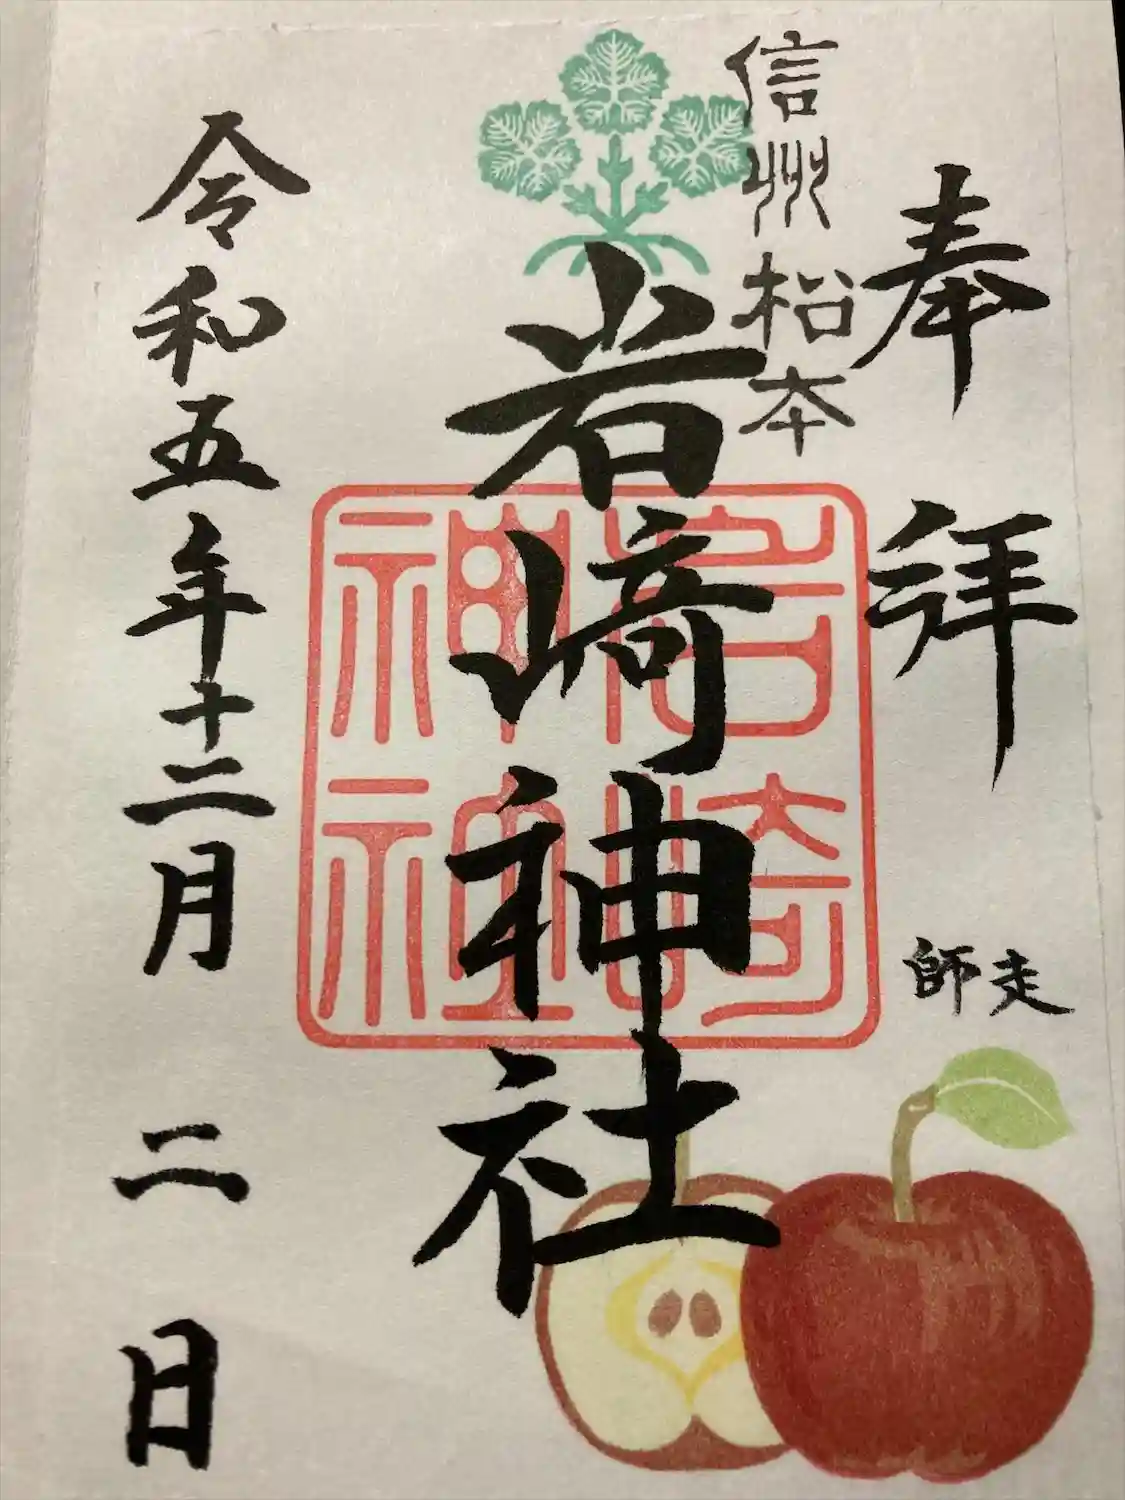 奉拝
師走
信州松本
岩崎神社
岩崎
神社
令和五年十二月二日